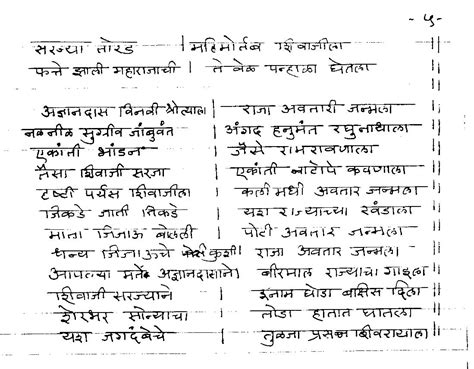 - ५-
सरज्या तोरड | महिमोर्तब शिवाजीला
फत्ते झाली महाराजाची | ते वेळ पन्हाळा घेतला ||
अज्ञानदास विनवी श्रोत्याला | राजा अवतारी जन्मला ||
नळनीळ सुग्रीव जांबुवंत | अंगद हनुमंत रघुनाथाला ||
एकांती भांडन | जैसे रामरावणाला ||
तैसा शिवाजी सरजा | एकांती नाटोपे कवणाला ||
दृष्टी पर्यस शिवाजीला | कली मधी अवतार जन्मला ||
जिकडे जाती तिकडे | यश राज्याच्या खंडाला ||
माता जिजाऊ बोलली | पोटी अवतार जन्मला ||
धन्य जिजाऊचे कुशी | राजा अवतार जन्मला ||
आपल्या मतें अज्ञानदासाने | बीरमाल राज्याचा गाइला ||
शिवाजी सरज्याने | इनाम घोडा बक्षिस दिला ||
शेरभर सोन्याचा | तोडा हातात घातला ||
यश जगदंबेचे | तुळजा प्रसन्न शिवरायाला ||